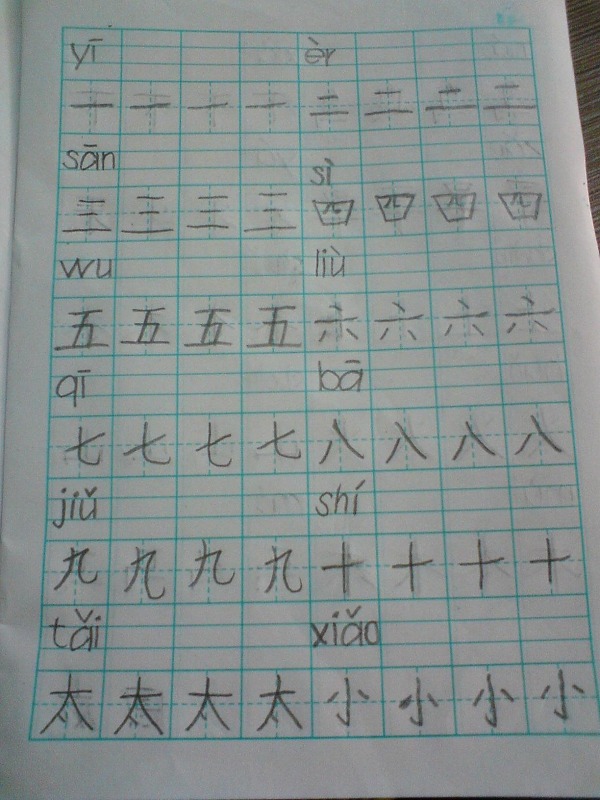 yī èr
一 一 一 一 二 二 二 二
sān sì
三 三 三 三 四 四 四 四
wu liù
五 五 五 五 六 六 六 六
qī bā
七 七 七 七 八 八 八 八
jiǔ shí
九 九 九 九 十 十 十 十
tǎi xiǎo
太 太 太 太 小 小 小 小